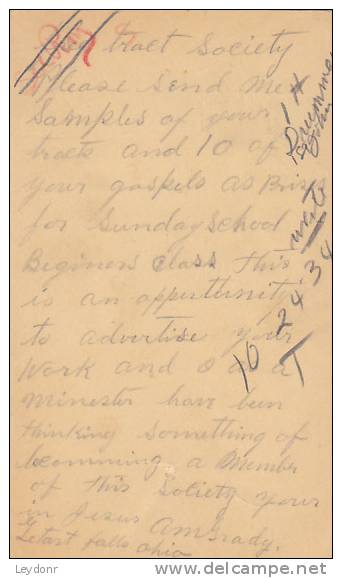 tract Society
Please Send Me
Samples of your
tracts and 10 of
your gospels as Prises
for Sunday School
Beginers class this
is an oppertunity
to advertise your
Work and I as a
Minester have been
thinking Something of
becomming a Member
of this Society your
in Jesus AM Grady.
Letart Falls Ohio
14
Drummer
John
write
10 24 34
Leydonr
delcampe.net